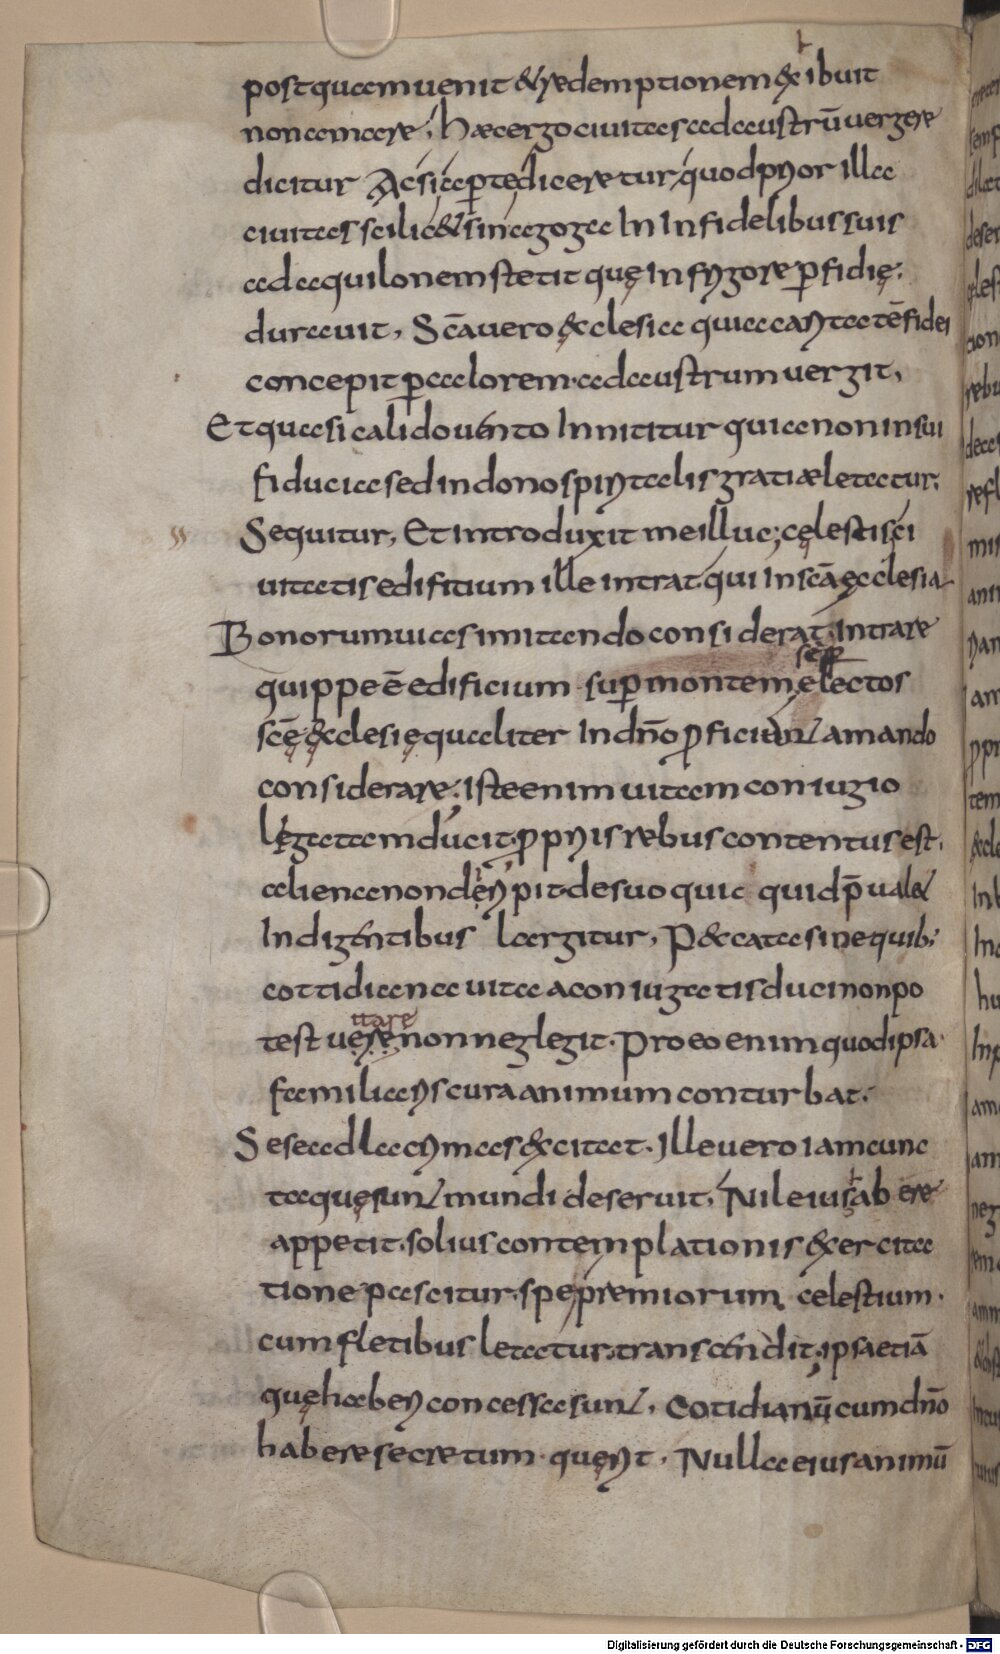 postquam uenit & redemptionem exibuit
non amare; haec ergo ciuitas ad austrū uergere
dicitur Ac si apte diceretur quod prior illa
ciuitas scilic& sinagoga In Infidelibus suis
ad aquilonem stetit quę In frigore pfidię;
durauit, Scā uero ecclesia quia caritatē fidei
concepit p calorem ad austrum uergit,
Et quasi calido uento Innititur quia non in sui
fiducia sed in dono spiritalis gratiæ letatur;
Sequitur, Et introduxit me illuc; cęlestis ci
uitatis edifitium ille intrat qui In scā ęcclesia
Bonorum uias imitando considerat, intrare
quippe ē edificium super montem electos
scę ęcclesię qualiter In dño pficiunt amando
considerare; Iste enim uitam coniugio
legatam ducit, ppriis rebus contentus est,
aliena non deripit de suo quic quid pualet
Indigentibus largitur, Peccata sine quib;
cottidiana uita a coniugatis duci non po
ttare
test uere non neglegit. Pro eo enim quod ipsa
familiaris cura animum conturbat;
Sese ad lacrimas excitat. Ille uero iam cunc
ta quę sunt mundi deseruit, Nil eius ab ere
appetit solius contemplationis exercita
tione pascitur, spe premiorum celestium.
cum fletibus letatur, transcendit, ipsa etiā
quę haberi concessa sunt, Cotidianū cum dño
habere secretum querit, Nulla eius animū
Digitalisierung gefördert durch die Deutsche Forschungsgemeinschaft - DFG